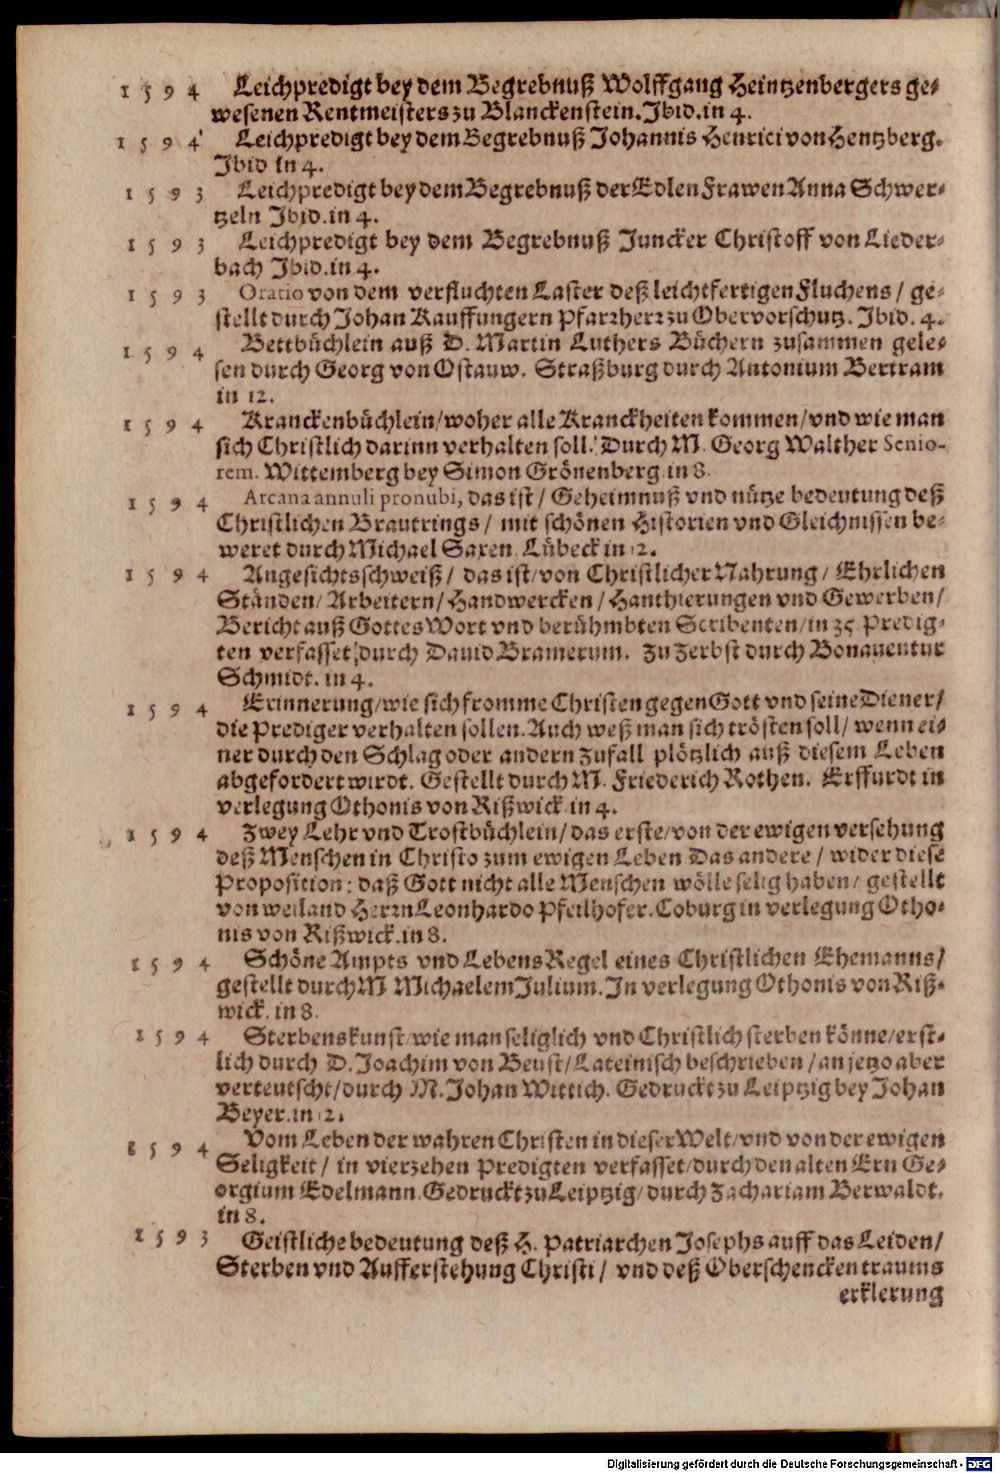 1594 Leichpredigt bey dem Begrebnuß Wolffgang Heintzenbergers ge-
wesenen Rentmeisters zu Blanckenstein. Ibid. in 4.
1594 Leichpredigt bey dem Begrebnuß Johannis Henrici von Hentzberg.
Ibid in 4.
1593 Leichpredigt bey dem Begrebnuß der Edlen Frawen Anna Schwer-
tzeln Ibid. in 4.
1593 Leichpredigt bey dem Begrebnuß Juncker Christoff von Lieder-
bach Ibid. in 4.
1593 Oratio von dem verfluchten Laster deß leichtfertigen Fluchens / ge-
stellt durch Johan Kauffungern Pfarrherr zu Obervorschutz. Ibid. 4.
1594 Bettbüchlein auß D. Martin Luthers Büchern zusammen gele-
sen durch Georg von Ostauw. Straßburg durch Antonium Bertram
in 12.
1594 Kranckenbüchlein / woher alle Kranckheiten kommen / vnd wie man
sich Christlich darinn verhalten soll. Durch M. Georg Walther Senio-
rem. Wittemberg bey Simon Grönenberg. in 8.
1594 Arcana annuli pronubi, das ist / Geheimnuß vnd nütze bedeutung deß
Christlichen Brautrings / mit schönen Historien vnd Gleichnissen be-
weret durch Michael Saxen. Lübeck in 12.
1594 Angesichtsschweiß / das ist / von Christlicher Nahrung / Ehrlichen
Ständen / Arbeitern / Handwercken / Hanthierungen vnd Gewerben /
Bericht auß Gottes Wort vnd berühmbten Scribenten / in 35 Predig-
ten verfasset / durch Dauid Bramerum. Zu Zerbst durch Bonauentur
Schmidt. in 4.
1594 Erinnerung / wie sich fromme Christen gegen Gott vnd seine Diener /
die Prediger verhalten sollen. Auch weß man sich trösten soll / wenn ei-
ner durch den Schlag oder andern Zufall plötzlich auß diesem Leben
abgefordert wirdt. Gestellt durch M. Friederich Rothen. Erffurdt in
verlegung Othonis von Rißwick. in 4.
1594 Zwey Lehr vnd Trostbüchlein / das erste / von der ewigen versehung
deß Menschen in Christo zum ewigen Leben Das andere / wider diese
Proposition: daß Gott nicht alle Menschen wölle selig haben / gestellt
von weiland Herrn Leonhardo Pfeilhofer. Coburg in verlegung Otho-
nis von Rißwick. in 8.
1594 Schöne Ampts vnd Lebens Regel eines Christlichen Ehemanns /
gestellt durch M Michaelem Julium. In verlegung Othonis von Riß-
wick. in 8.
1594 Sterbenskunst / wie man seliglich vnd Christlich sterben könne / erst-
lich durch D. Joachim von Beust / Lateinisch beschrieben / an jetzo aber
verteutscht / durch M. Johan Wittich. Gedruckt zu Leiptzig bey Johan
Beyer. in 12.
1594 Vom Leben der wahren Christen in dieser Welt / vnd von der ewigen
Seligkeit / in vierzehen Predigten verfasset / durch den alten Ern Ge-
orgium Edelmann. Gedruckt zu Leiptzig / durch Zachariam Berwaldt.
in 8.
1593 Geistliche bedeutung deß H. Patriarchen Josephs auff das Leiden /
Sterben vnd Aufferstehung Christi / vnd deß Oberschencken traums
erklerung
Digitalisierung gefördert durch die Deutsche Forschungsgemeinschaft - DFG